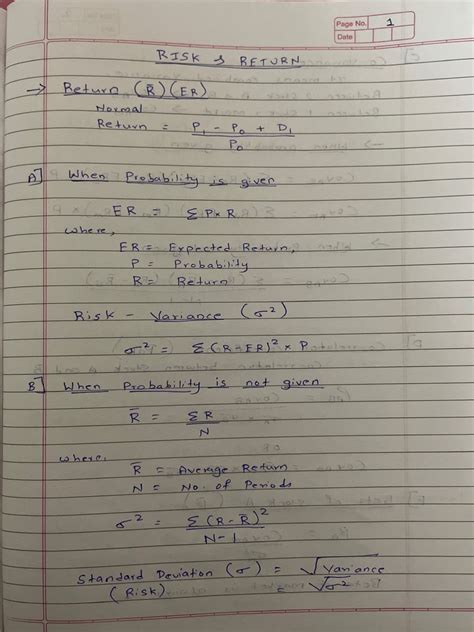 Page No. 1
Date
RISK & RETURN
→ Return (R̄) (ER)
Normal
Return = P₁ - P₀ + D₁
P₀
A] When Probability is given
ER = ΣP×R
where,
ER = Expected Return,
P = Probability
R = Return
Risk - Variance (σ²)
σ² = Σ(R-ER)² × P
B] When Probability is not given
R̄ = ΣR
N
where,
R̄ = Average Return
N = No. of Periods
σ² = Σ(R-R̄)²
N-1
Standard Deviation (σ) = √Variance
(Risk) √σ²